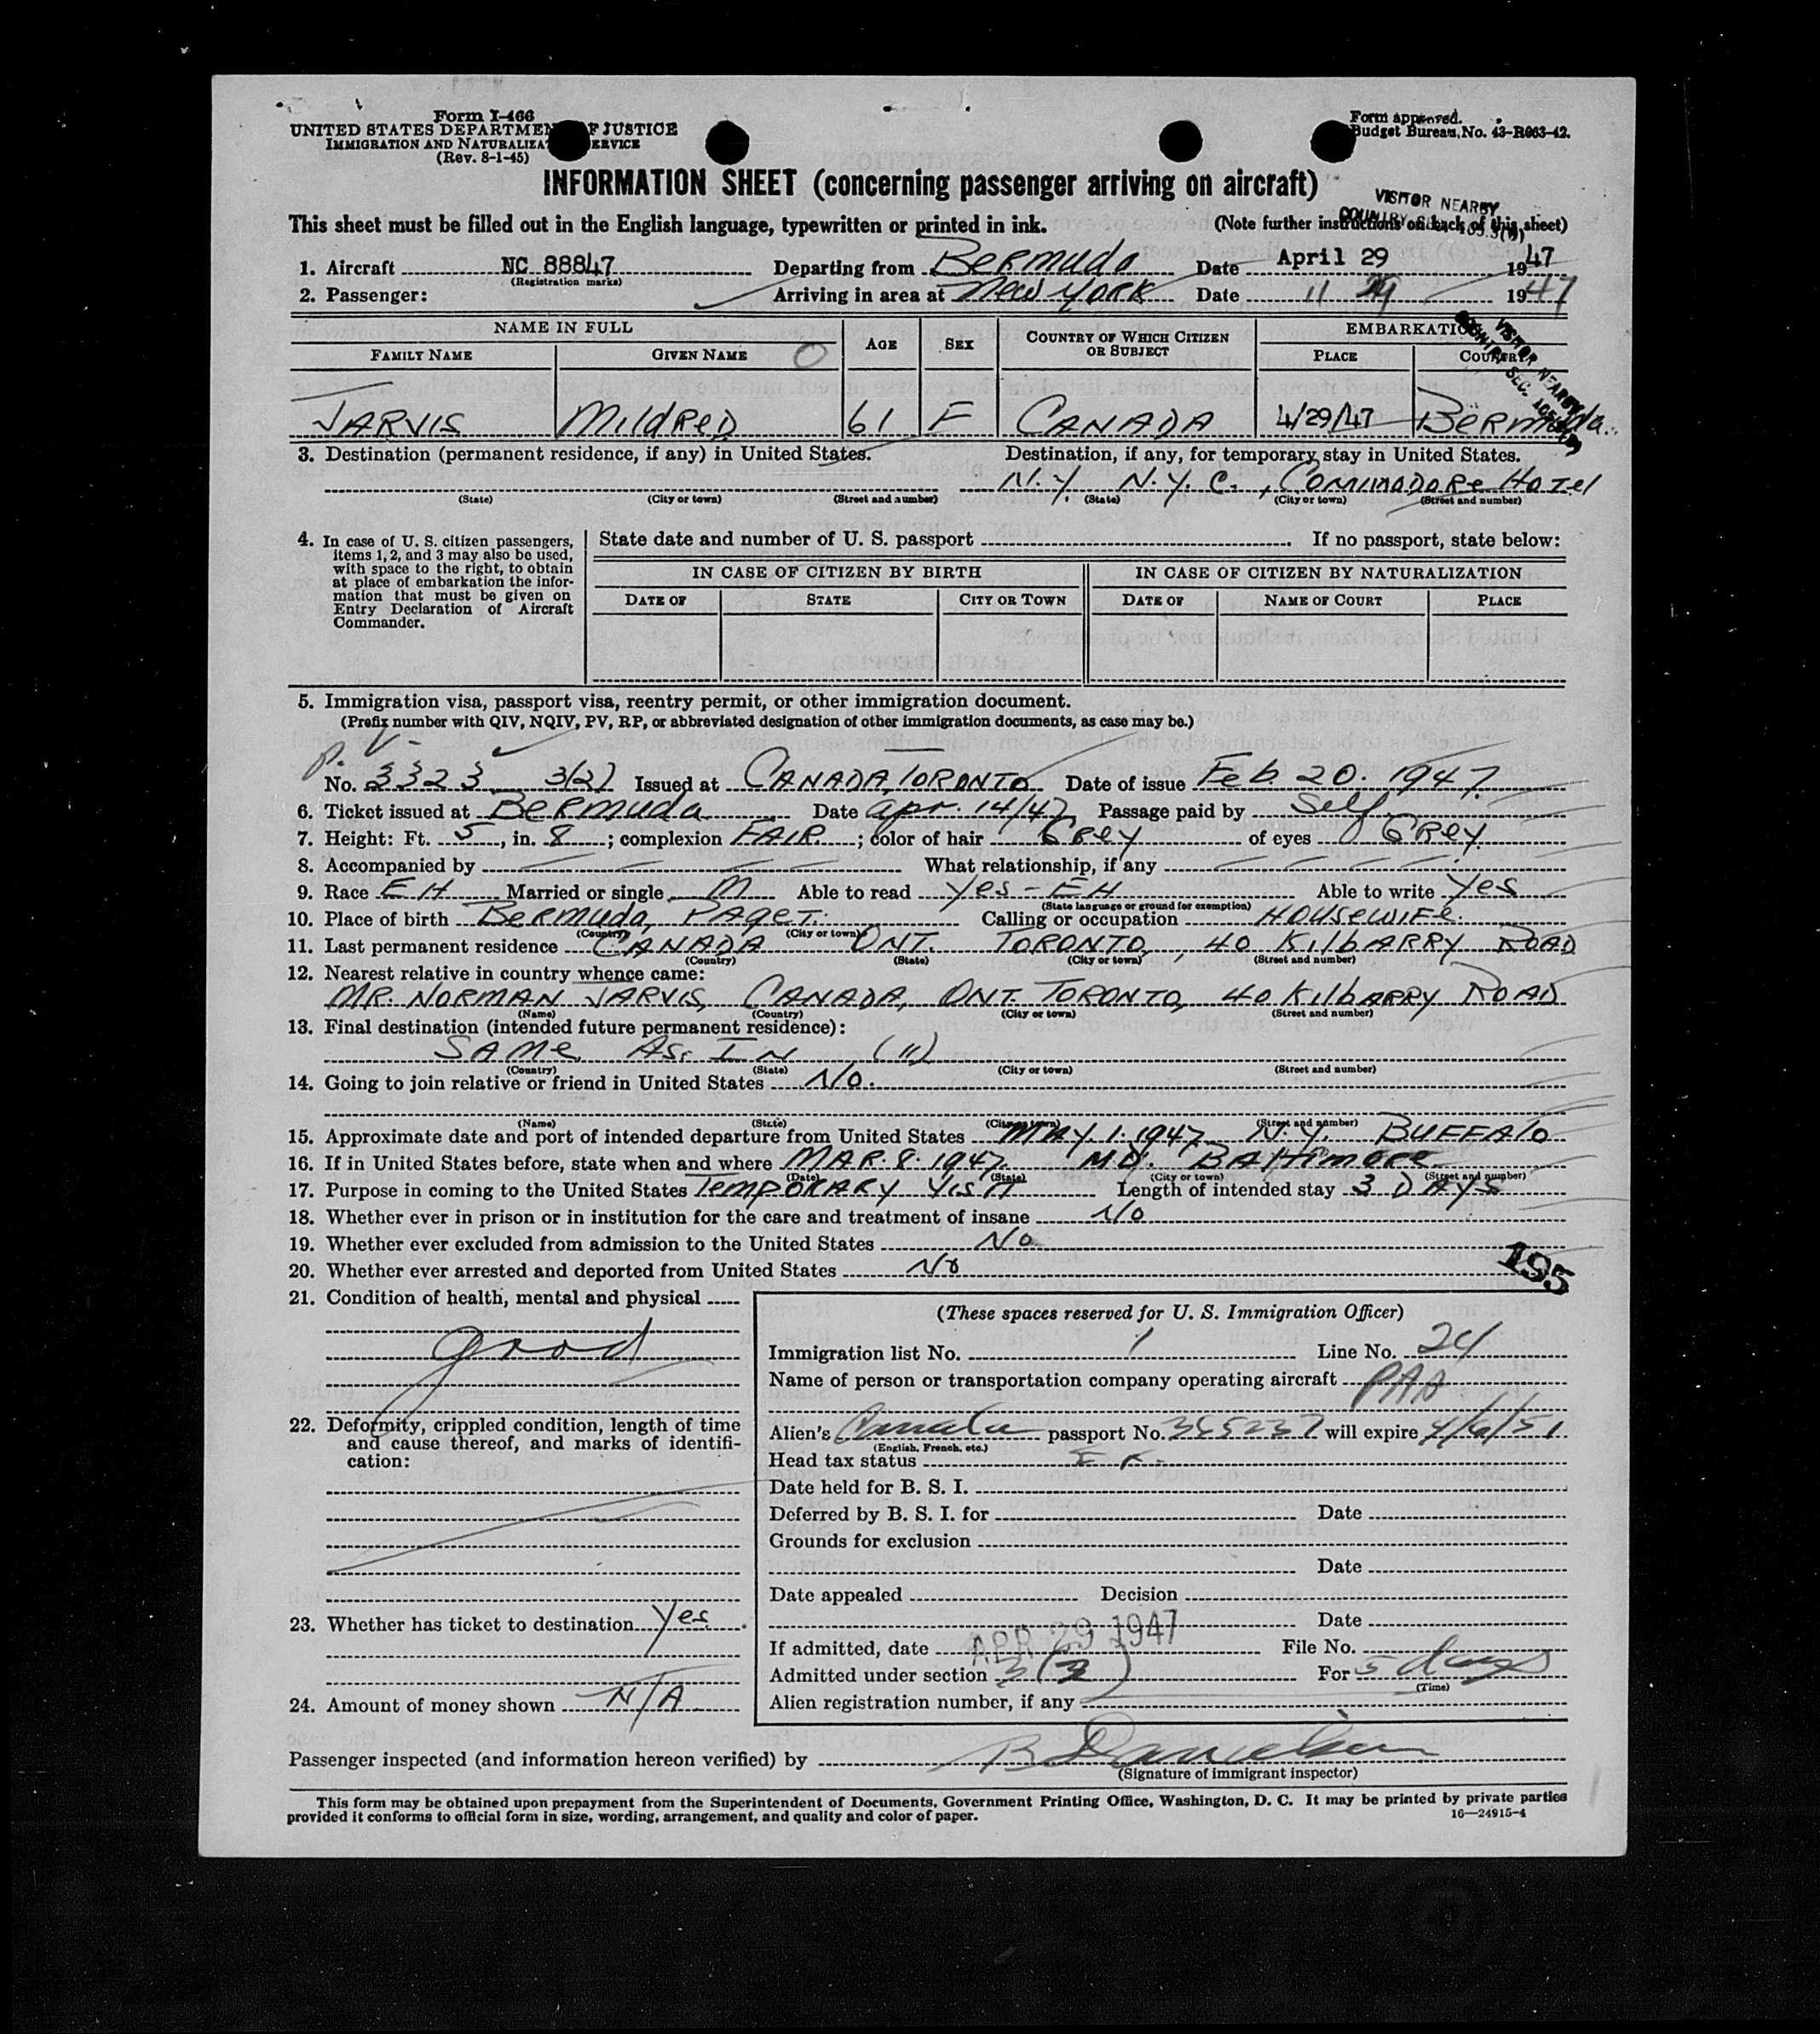 Form I-466
UNITED STATES DEPARTMEN F JUSTICE
IMMIGRATION AND NATURALIZAT ERVICE
(Rev. 8-1-45)
Form approved.
Budget Bureau No. 43-R063-42.
INFORMATION SHEET (concerning passenger arriving on aircraft)
VISITOR NEARBY
COUNTRY
This sheet must be filled out in the English language, typewritten or printed in ink. (Note further instructions on back of this sheet)
1. Aircraft NC 88847 Departing from Bermuda Date April 29 1947
(Registration marks)
2. Passenger: Arriving in area at New York Date 11 29 1947
NAME IN FULL AGE SEX COUNTRY OF WHICH CITIZEN OR SUBJECT EMBARKATIO
FAMILY NAME GIVEN NAME PLACE COUNTRY
VISITOR NEARBY
COUNTRY SEC.
JARVIS MildReD 61 F CANADA 4/29/47 BeRmuda.
3. Destination (permanent residence, if any) in United States. Destination, if any, for temporary stay in United States.
N.Y. N.Y.C., COMMADORe HoTel
(State) (City or town) (Street and number) (State) (City or town) (Street and number)
4. In case of U. S. citizen passengers, items 1, 2, and 3 may also be used, with space to the right, to obtain at place of embarkation the information that must be given on Entry Declaration of Aircraft Commander.
State date and number of U. S. passport If no passport, state below:
IN CASE OF CITIZEN BY BIRTH IN CASE OF CITIZEN BY NATURALIZATION
DATE OF STATE CITY OR TOWN DATE OF NAME OF COURT PLACE
5. Immigration visa, passport visa, reentry permit, or other immigration document.
(Prefix number with QIV, NQIV, PV, RP, or abbreviated designation of other immigration documents, as case may be.)
P. V-
No. 3323 3(2) Issued at CANADA, TORONTO Date of issue Feb. 20. 1947.
6. Ticket issued at BeRmuda Date apr. 14/47 Passage paid by Self
7. Height: Ft. 5, in. 8; complexion FAIR.; color of hair GRey of eyes GRey.
8. Accompanied by What relationship, if any
9. Race EH Married or single M Able to read Yes - EH Able to write Yes
(State language or ground for exemption)
10. Place of birth BeRmuda, PAgeT. Calling or occupation HOUSeWIFe.
(Country) (City or town)
11. Last permanent residence CANADA ONT. TORONTO, 40 KilbARRY ROAD
(Country) (State) (City or town) (Street and number)
12. Nearest relative in country whence came:
MR. NORMAN JARVIS, CANADA, ONT. TORONTO, 40 KilbARRY ROAD
(Name) (Country) (City or town) (Street and number)
13. Final destination (intended future permanent residence):
SAMe As. IN (11)
(Country) (State) (City or town) (Street and number)
14. Going to join relative or friend in United States No.
(Name) (State) (City or town) (Street and number)
15. Approximate date and port of intended departure from United States MAY. 1. 1947 N.Y. BUFFAlo
16. If in United States before, state when and where MAR. 8. 1947. MD. BAltimore
(Date) (State) (City or town) (Street and number)
17. Purpose in coming to the United States TemPORARY VisiT Length of intended stay 3 DAYS
18. Whether ever in prison or in institution for the care and treatment of insane No
19. Whether ever excluded from admission to the United States No
20. Whether ever arrested and deported from United States No
195
21. Condition of health, mental and physical
good
22. Deformity, crippled condition, length of time and cause thereof, and marks of identification:
23. Whether has ticket to destination Yes.
24. Amount of money shown N/A
(These spaces reserved for U. S. Immigration Officer)
Immigration list No. 1 Line No. 24
Name of person or transportation company operating aircraft PAA
Alien's Canada passport No. 365237 will expire 4/6/51.
(English, French, etc.)
Head tax status
Date held for B. S. I.
Deferred by B. S. I. for Date
Grounds for exclusion
Date
Date appealed Decision
Date
If admitted, date APR 29 1947 File No.
Admitted under section 3(2) For 5 days
(Time)
Alien registration number, if any
Passenger inspected (and information hereon verified) by B Danielson
(Signature of immigrant inspector)
This form may be obtained upon prepayment from the Superintendent of Documents, Government Printing Office, Washington, D. C. It may be printed by private parties
provided it conforms to official form in size, wording, arrangement, and quality and color of paper. 16—24915-4